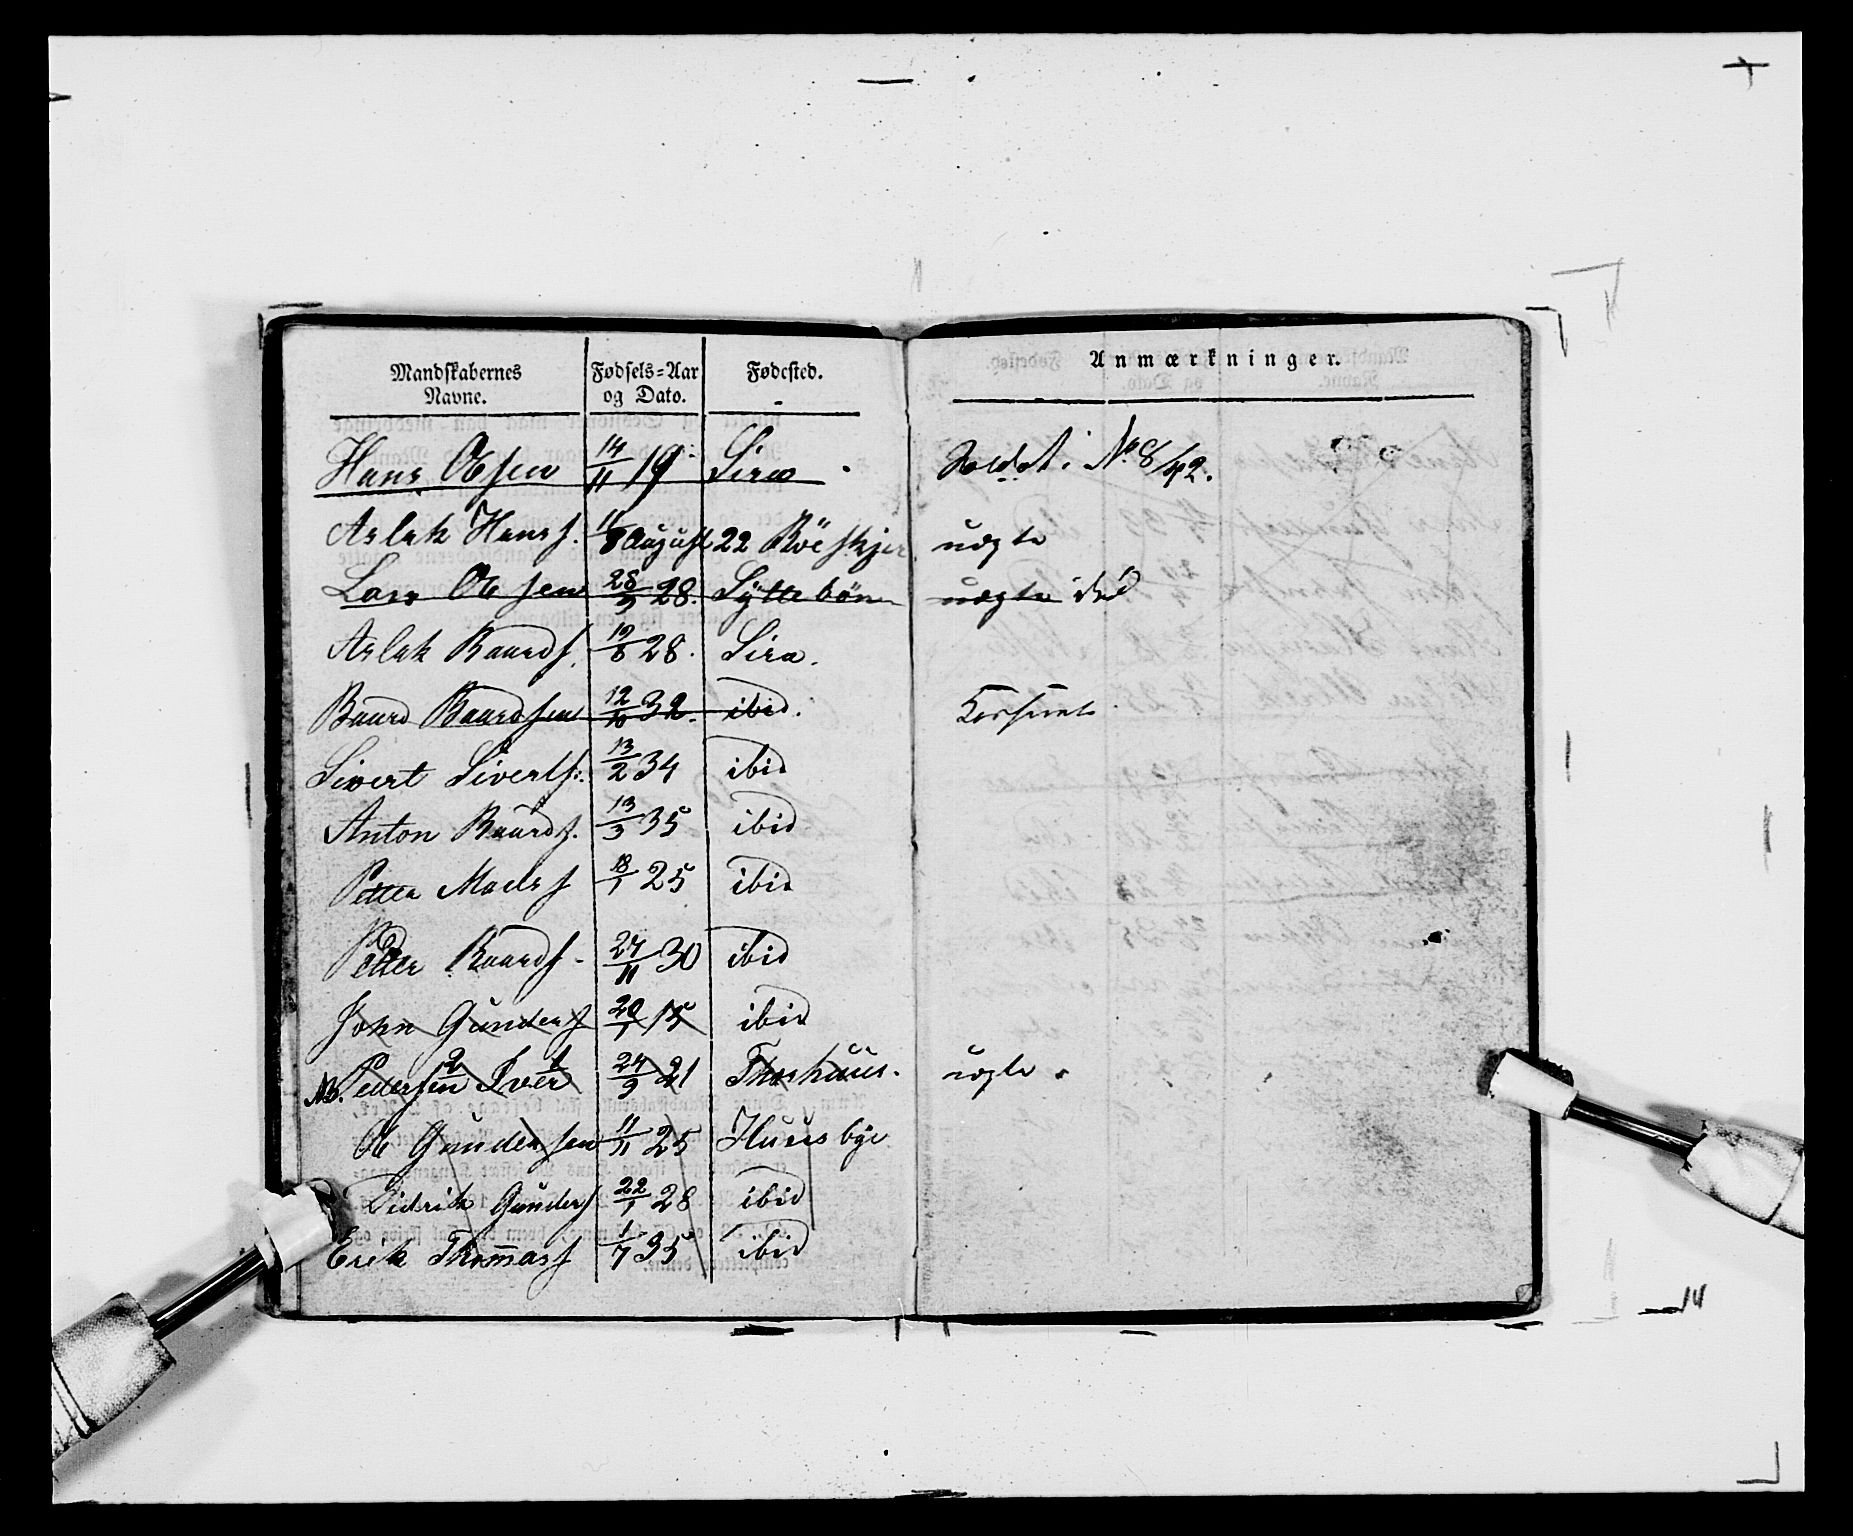 Mandskabernes Navne. Fødsels-Aar og Dato. Fødested. Anmærkninger.
Hans Olsen 14/11 19 Sira Soldat i No 8/42.
Aslak Hanss. 11/8 August 22 Röeskjer uægte
Lars Olsen 28/9 28. Lyttebön uægte död
Aslak Baards. 19/8 28. Sira.
Baard Baardsen 12/10 32. ibid.
Sivert Siverts: 13/2 34 ibid
Anton Baards. 13/3 35 ibid
Petter Mads 18/1 25 ibid
Petter Baards. 27/11 30 ibid
John Gunders 20/1 15 ibid
NB. Pedersen 2 Iver 1 24/9 21 Thorshuus. uægte.
Ole Gundersen 11/11 25 Huusbye
Didrik Gunders 22/1 28 ibid
Erik Thomas 1/7 35 ibid
14